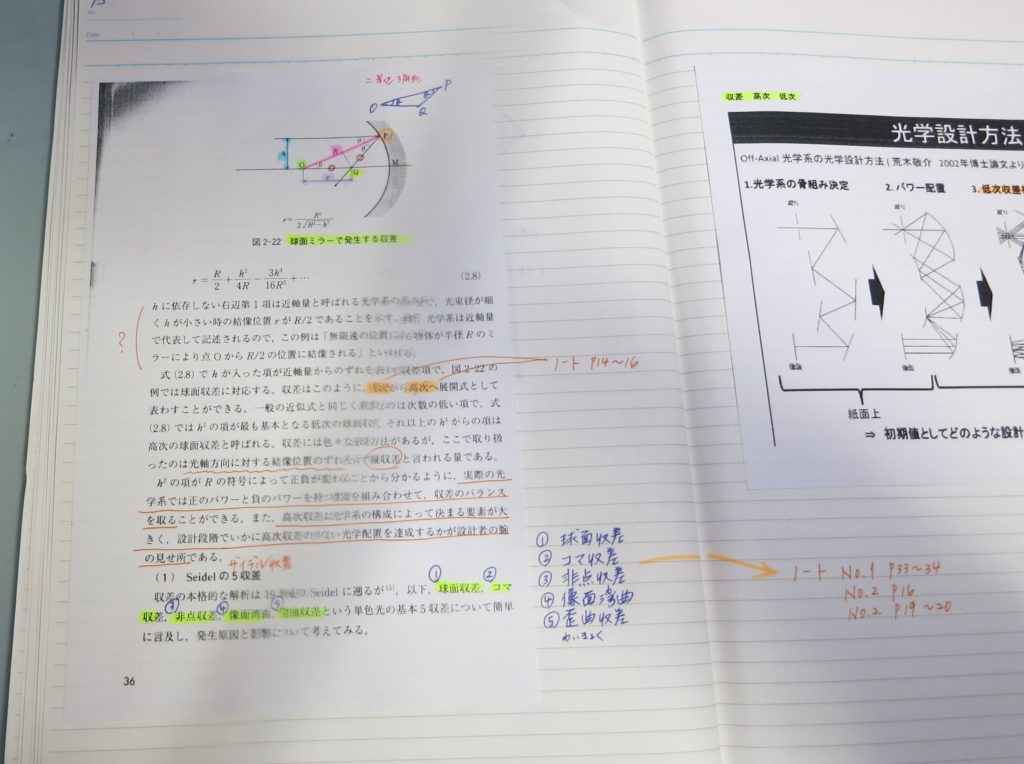 No.
Date
二等辺3角形
O
P
Q
θ
θ
h
R
O
θ
θ
P
M
Q
r
r= R² / 2√R²−h²
図2-22 球面ミラーで発生する収差
r = R/2 + h²/4R − 3h⁴/16R³ + … (2.8)
?
hに依存しない右辺第1項は近軸量と呼ばれる光学系の で,光束径が細
くhが小さい時の結像位置rがR/2であることを示す. 光学系は近軸量
で代表して記述されるので,この例は「無限遠の位置にある物体が半径Rのミ
ラーにより点OからR/2の位置に結像される」といわれる.
式(2.8)でhが入った項が近軸量からのずれを表わす収差項で,図2-22の
例では球面収差に対応する.収差はこのように,低次から高次へ展開式として
表わすことができる.一般の近似式と同じく重要なのは次数の低い項で,式
(2.8)ではh²の項が最も基本となる低次の球面収差,それ以上のh⁴からの項は
高次の球面収差と呼ばれる.収差には色々な表現方法があるが,ここで取り扱
ったのは光軸方向に対する結像位置のずれを示す縦収差と言われる量である.
h²の項がRの符号によって正負が変わることから分かるように,実際の光
学系では正のパワーと負のパワーを持つ要素を組み合わせて,収差のバランス
を取ることができる.また,高次収差は光学系の構成によって決まる要素が大
きく,設計段階でいかに高次収差の少ない光学配置を達成するかが設計者の腕
の見せ所である.
ザイデル収差
(1) Seidelの5収差
① ②
収差の本格的な解析は19世紀のSeidelに遡るが¹⁵⁾,以下,球面収差,コマ
③ ④ ⑤
収差,非点収差,像面湾曲,歪曲収差という単色光の基本5収差について簡単
に言及し,発生原因と影響について考えてみる.
36
ノート P14〜16
① 球面収差
② コマ収差
③ 非点収差
④ 像面湾曲
⑤ 歪曲収差
わいきょく
ノート No.1 P33〜34
No.2 P16
No.2 P19〜20.
収差 高次 低次
光学設計方法
Off-Axial 光学系の光学設計方法 ( 荒木敬介 2002年博士論文より
1.光学系の骨組み決定
2. パワー配置
3. 低次収差
絞り
絞り
像面
像面
紙面上
⇒ 初期値としてどのような設計